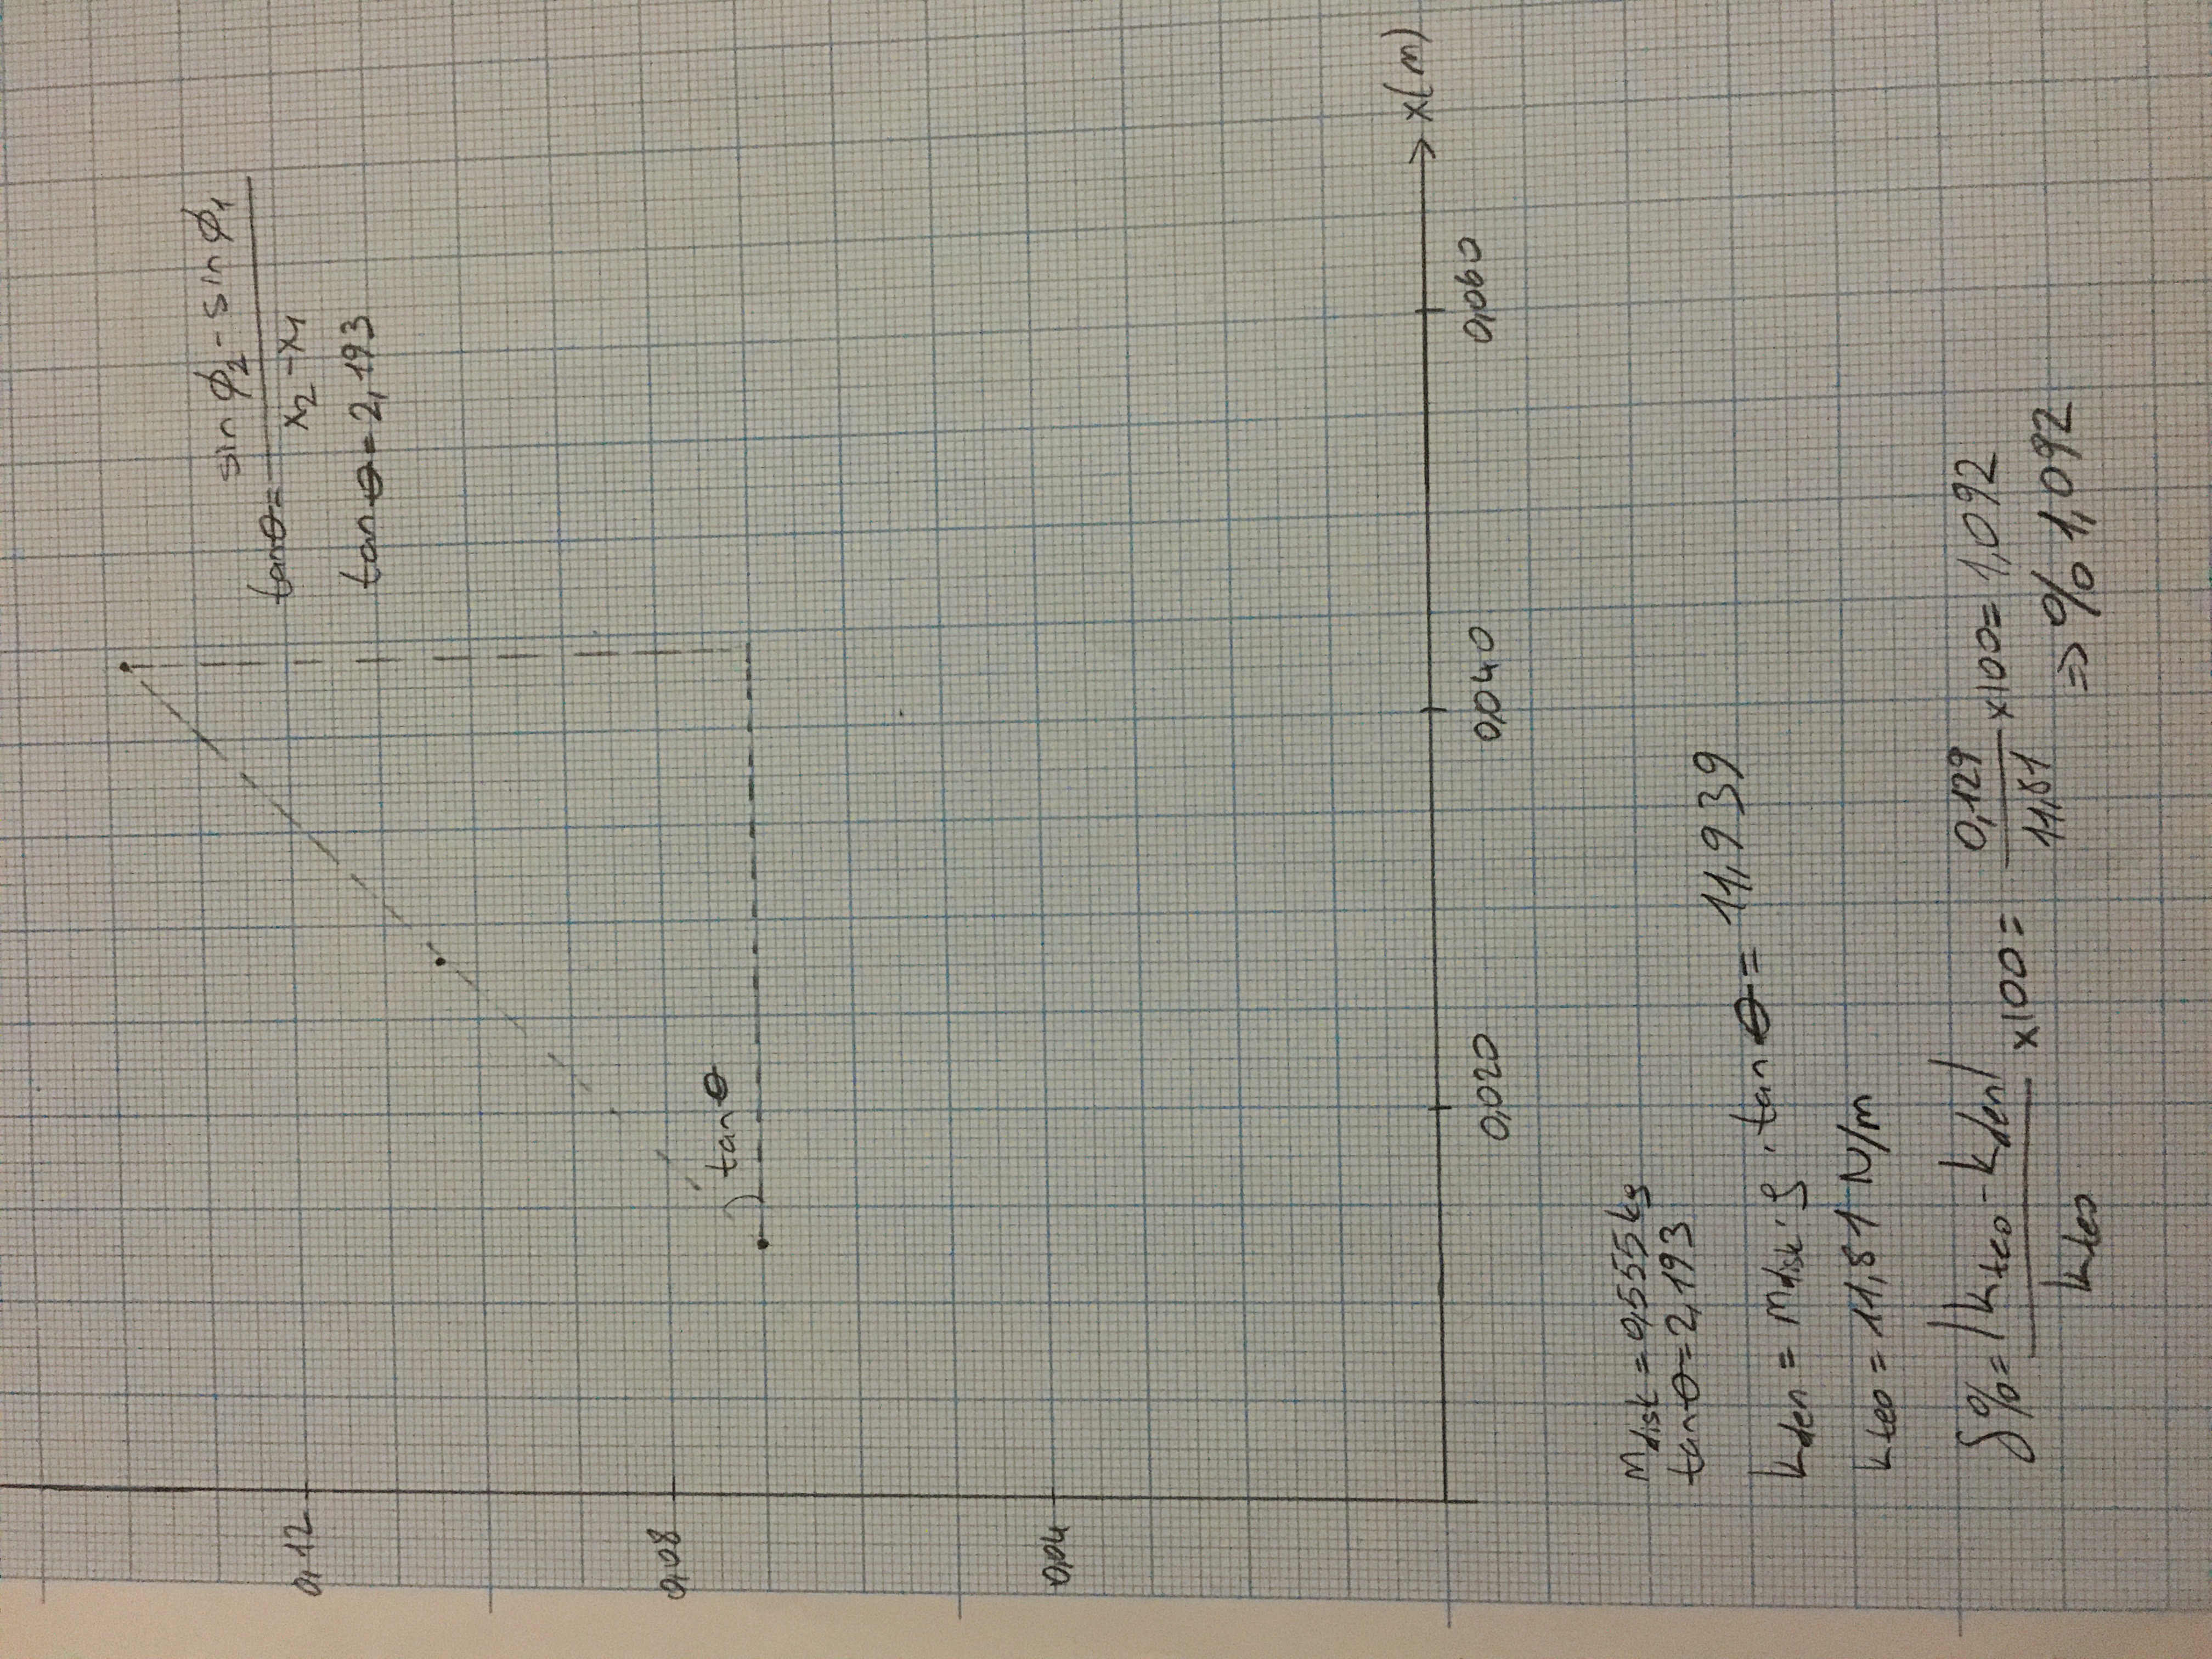 0,12
tanθ = sin ϕ₂ - sin ϕ₁ / x₂ - x₁
tanθ = 2,193
0,08
tanθ
0,04
x(m)
0,020 0,040 0,060
m_disk = 0,555kg
tanθ = 2,193
k_den = m_disk . g . tanθ = 11,939
k_teo = 11,81 N/m
δ% = |k_teo - k_den| / k_teo x100 = 0,129 / 11,81 x100 = 1,092
⇒ % 1,092